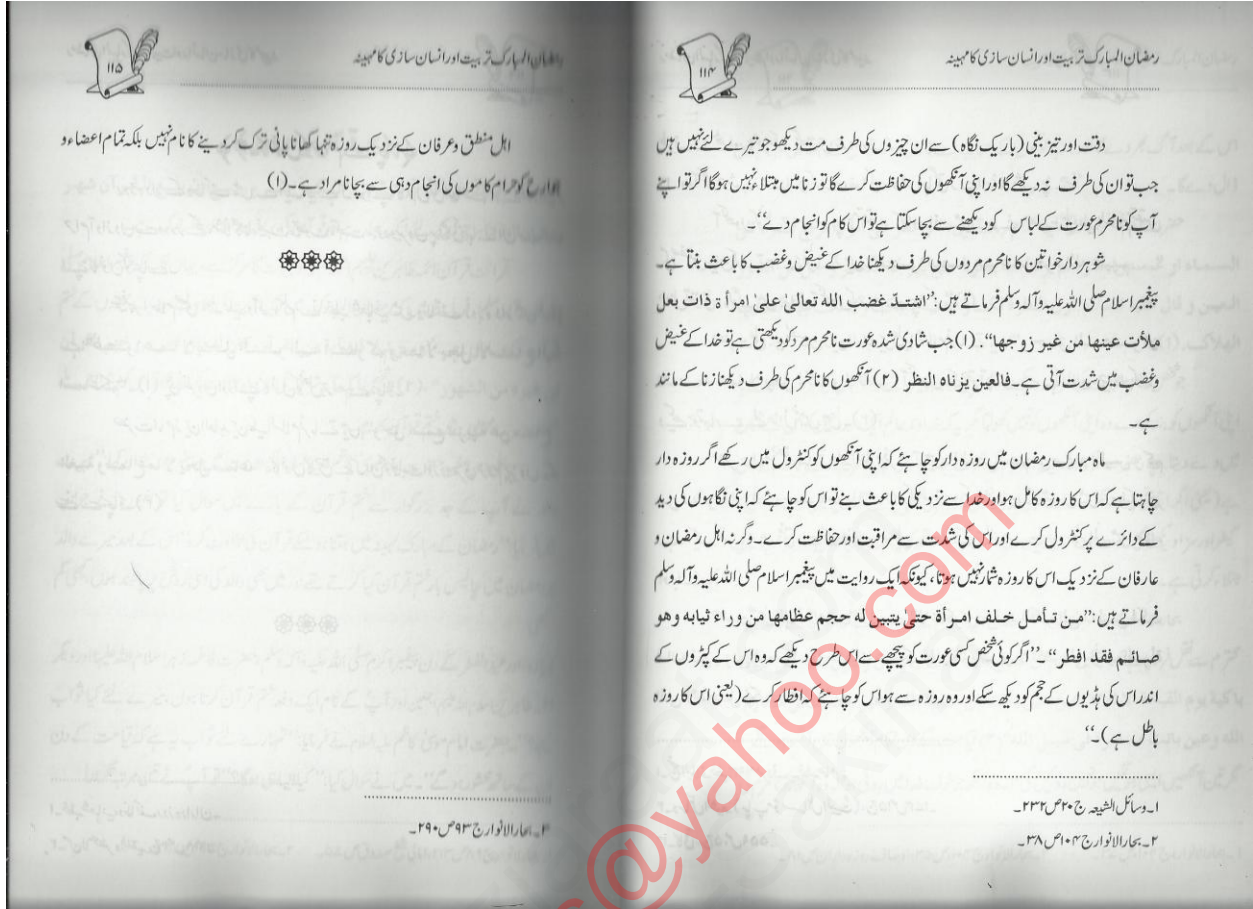 رمضان المبارک تربیت اور انسان سازی کا مہینہ
۱۱۴
دقت اور تیز بینی (باریک نگاہ) سے ان چیزوں کی طرف مت دیکھو جو تیرے لئے نہیں ہیں
جب تو ان کی طرف نہ دیکھے گا اور اپنی آنکھوں کی حفاظت کرے گا تو زنا میں مبتلاء نہیں ہوگا اگر تو اپنے
آپ کو نامحرم عورت کے لباس کو دیکھنے سے بچا سکتا ہے تو اس کام کو انجام دے‘‘۔
شوہر دار خواتین کا نامحرم مردوں کی طرف دیکھنا خدا کے غیض و غضب کا باعث بنتا ہے۔
پیغمبر اسلام صلی اللہ علیہ وآلہ وسلم فرماتے ہیں:’’اشتدّ غضب الله تعالیٰ علیٰ امرأة ذات بعل
ملأت عینها من غیر زوجها‘‘. (۱) جب شادی شدہ عورت نامحرم مرد کو دیکھتی ہے تو خدا کے غیض
و غضب میں شدت آتی ہے۔ فالعین یزناه النظر (۲) آنکھوں کا نامحرم کی طرف دیکھنا زنا کے مانند
ہے۔
ماہ مبارک رمضان میں روزہ دار کو چاہئے کہ اپنی آنکھوں کو کنٹرول میں رکھے اگر روزہ دار
چاہتا ہے کہ اس کا روزہ کامل ہو اور خدا سے نزدیکی کا باعث بنے تو اس کو چاہئے کہ اپنی نگاہوں کی دید
کے دائرے پر کنٹرول کرے اور اس کی شدت سے مراقبت اور حفاظت کرے۔ وگرنہ اہل رمضان و
عارفان کے نزدیک اس کا روزہ شمار نہیں ہوتا، کیونکہ ایک روایت میں پیغمبر اسلام صلی اللہ علیہ وآلہ وسلم
فرماتے ہیں:’’من تأمل خلف امرأة حتیٰ یتبین له حجم عظامها من وراء ثیابه وهو
صائم فقد افطر‘‘۔ ’’اگر کوئی شخص کسی عورت کو پیچھے سے اس طرح دیکھے کہ وہ اس کے کپڑوں کے
اندر اس کی ہڈیوں کے حجم کو دیکھ سکے اور وہ روزہ سے ہو اس کو چاہئے کہ افطار کرے (یعنی اس کا روزہ
باطل ہے)۔‘‘
۱۔ وسائل الشیعہ ج ۲۰ ص ۲۳۲۔
۲۔ بحار الانوار ج ۱۰۴ ص ۳۸۔
رمضان المبارک تربیت اور انسان سازی کا مہینہ
۱۱۵
اہل منطق و عرفان کے نزدیک روزہ تنہا کھانا پانی ترک کر دینے کا نام نہیں بلکہ تمام اعضاء و
جوارح کو حرام کاموں کی انجام دہی سے بچانا مراد ہے۔ (۱)
۳۔ بحار الانوار ج ۹۳ ص ۲۹۰۔
@yahoo.com